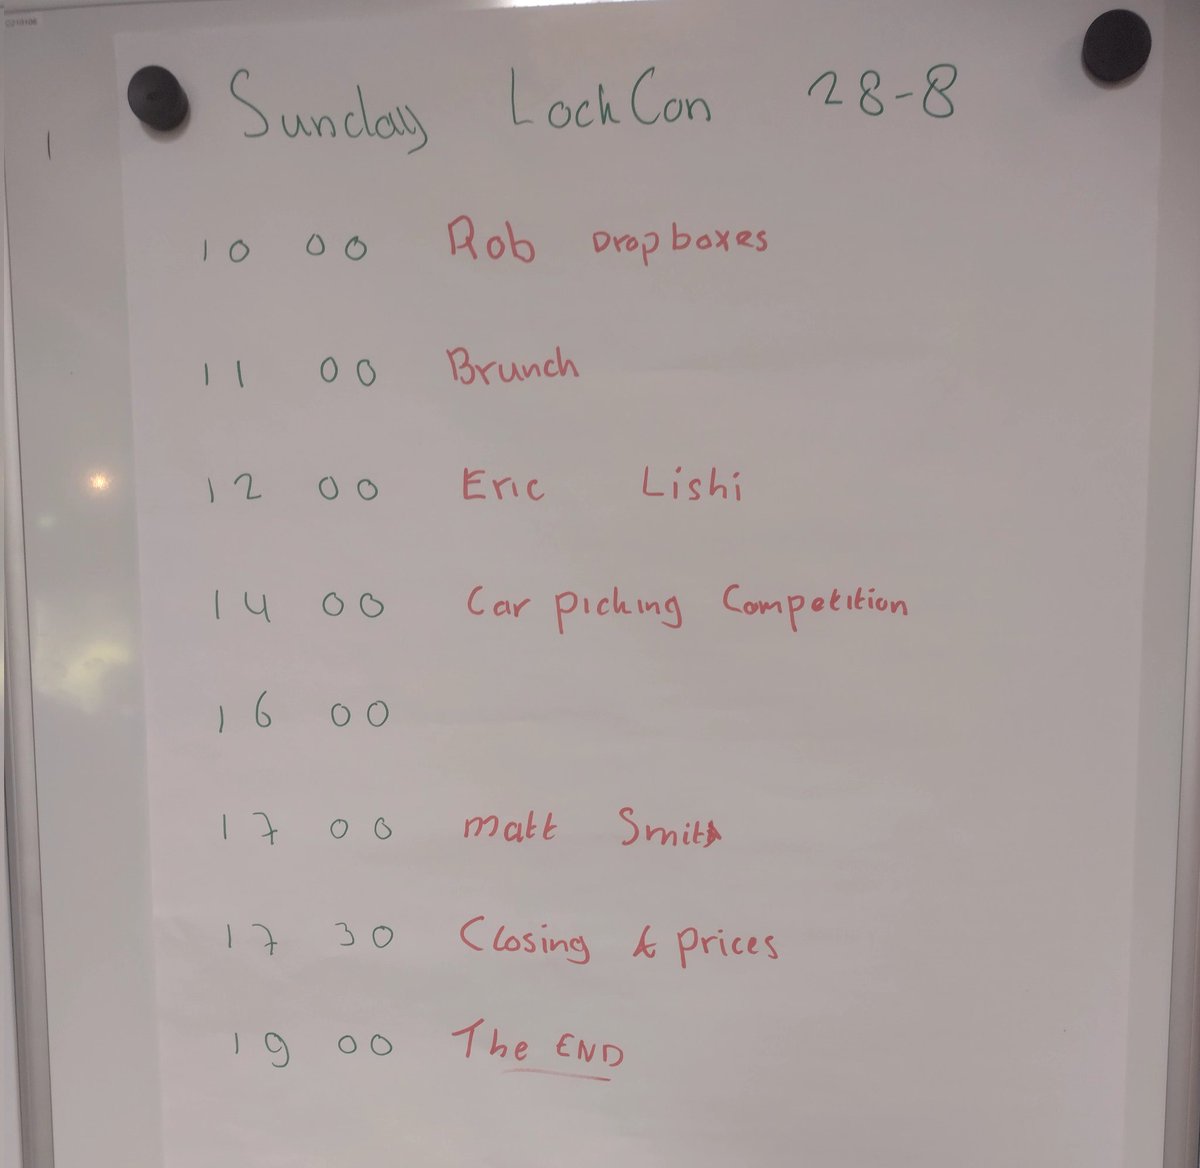 Sunday LockCon 28-8
10 00 Rob Dropboxes
11 00 Brunch
12 00 Eric Lishi
14 00 Car picking Competition
16 00
17 00 Matt Smith
17 30 Closing & prices
19 00 The END